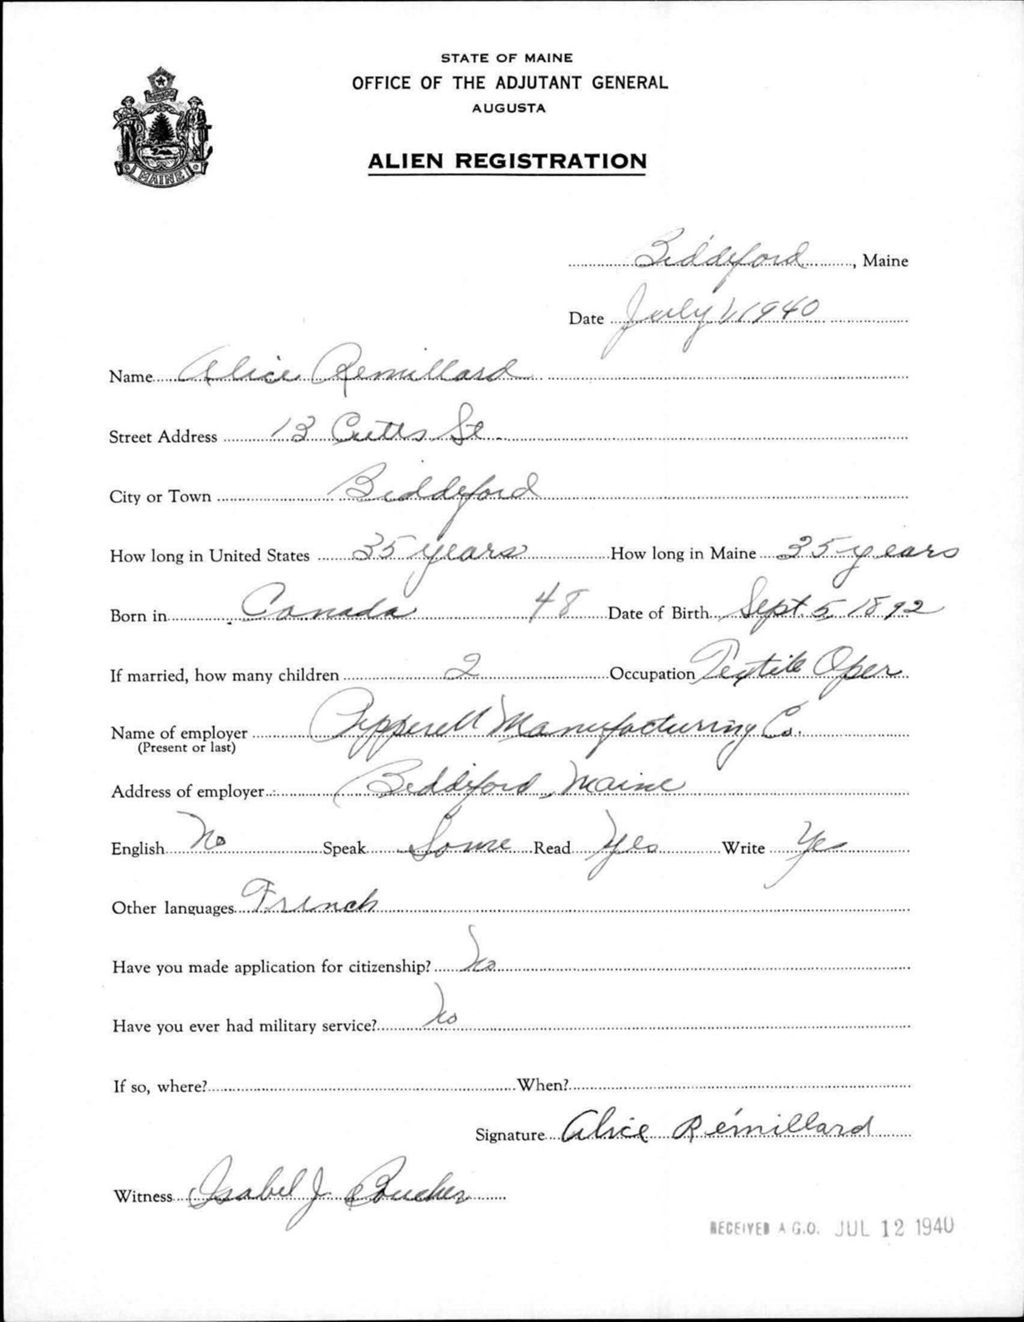 STATE OF MAINE
OFFICE OF THE ADJUTANT GENERAL
AUGUSTA
ALIEN REGISTRATION
MAINE
Biddeford, Maine
Date July 1, 1940
Name Alice Remillard
Street Address 13 Cutts St.
City or Town Biddeford
How long in United States 35 years How long in Maine 35 years
Born in Canada 48 Date of Birth Sept 5, 1892
If married, how many children 2 Occupation Textile Oper
Name of employer Pepperell Manufacturing Co.
(Present or last)
Address of employer Biddeford, Maine
English No Speak Some Read Yes Write Yes
Other languages French
Have you made application for citizenship? No
Have you ever had military service? No
If so, where? When?
Signature Alice Rémillard
Witness Isabel J. Boucher
RECEIVED A.G.O. JUL 12 1940